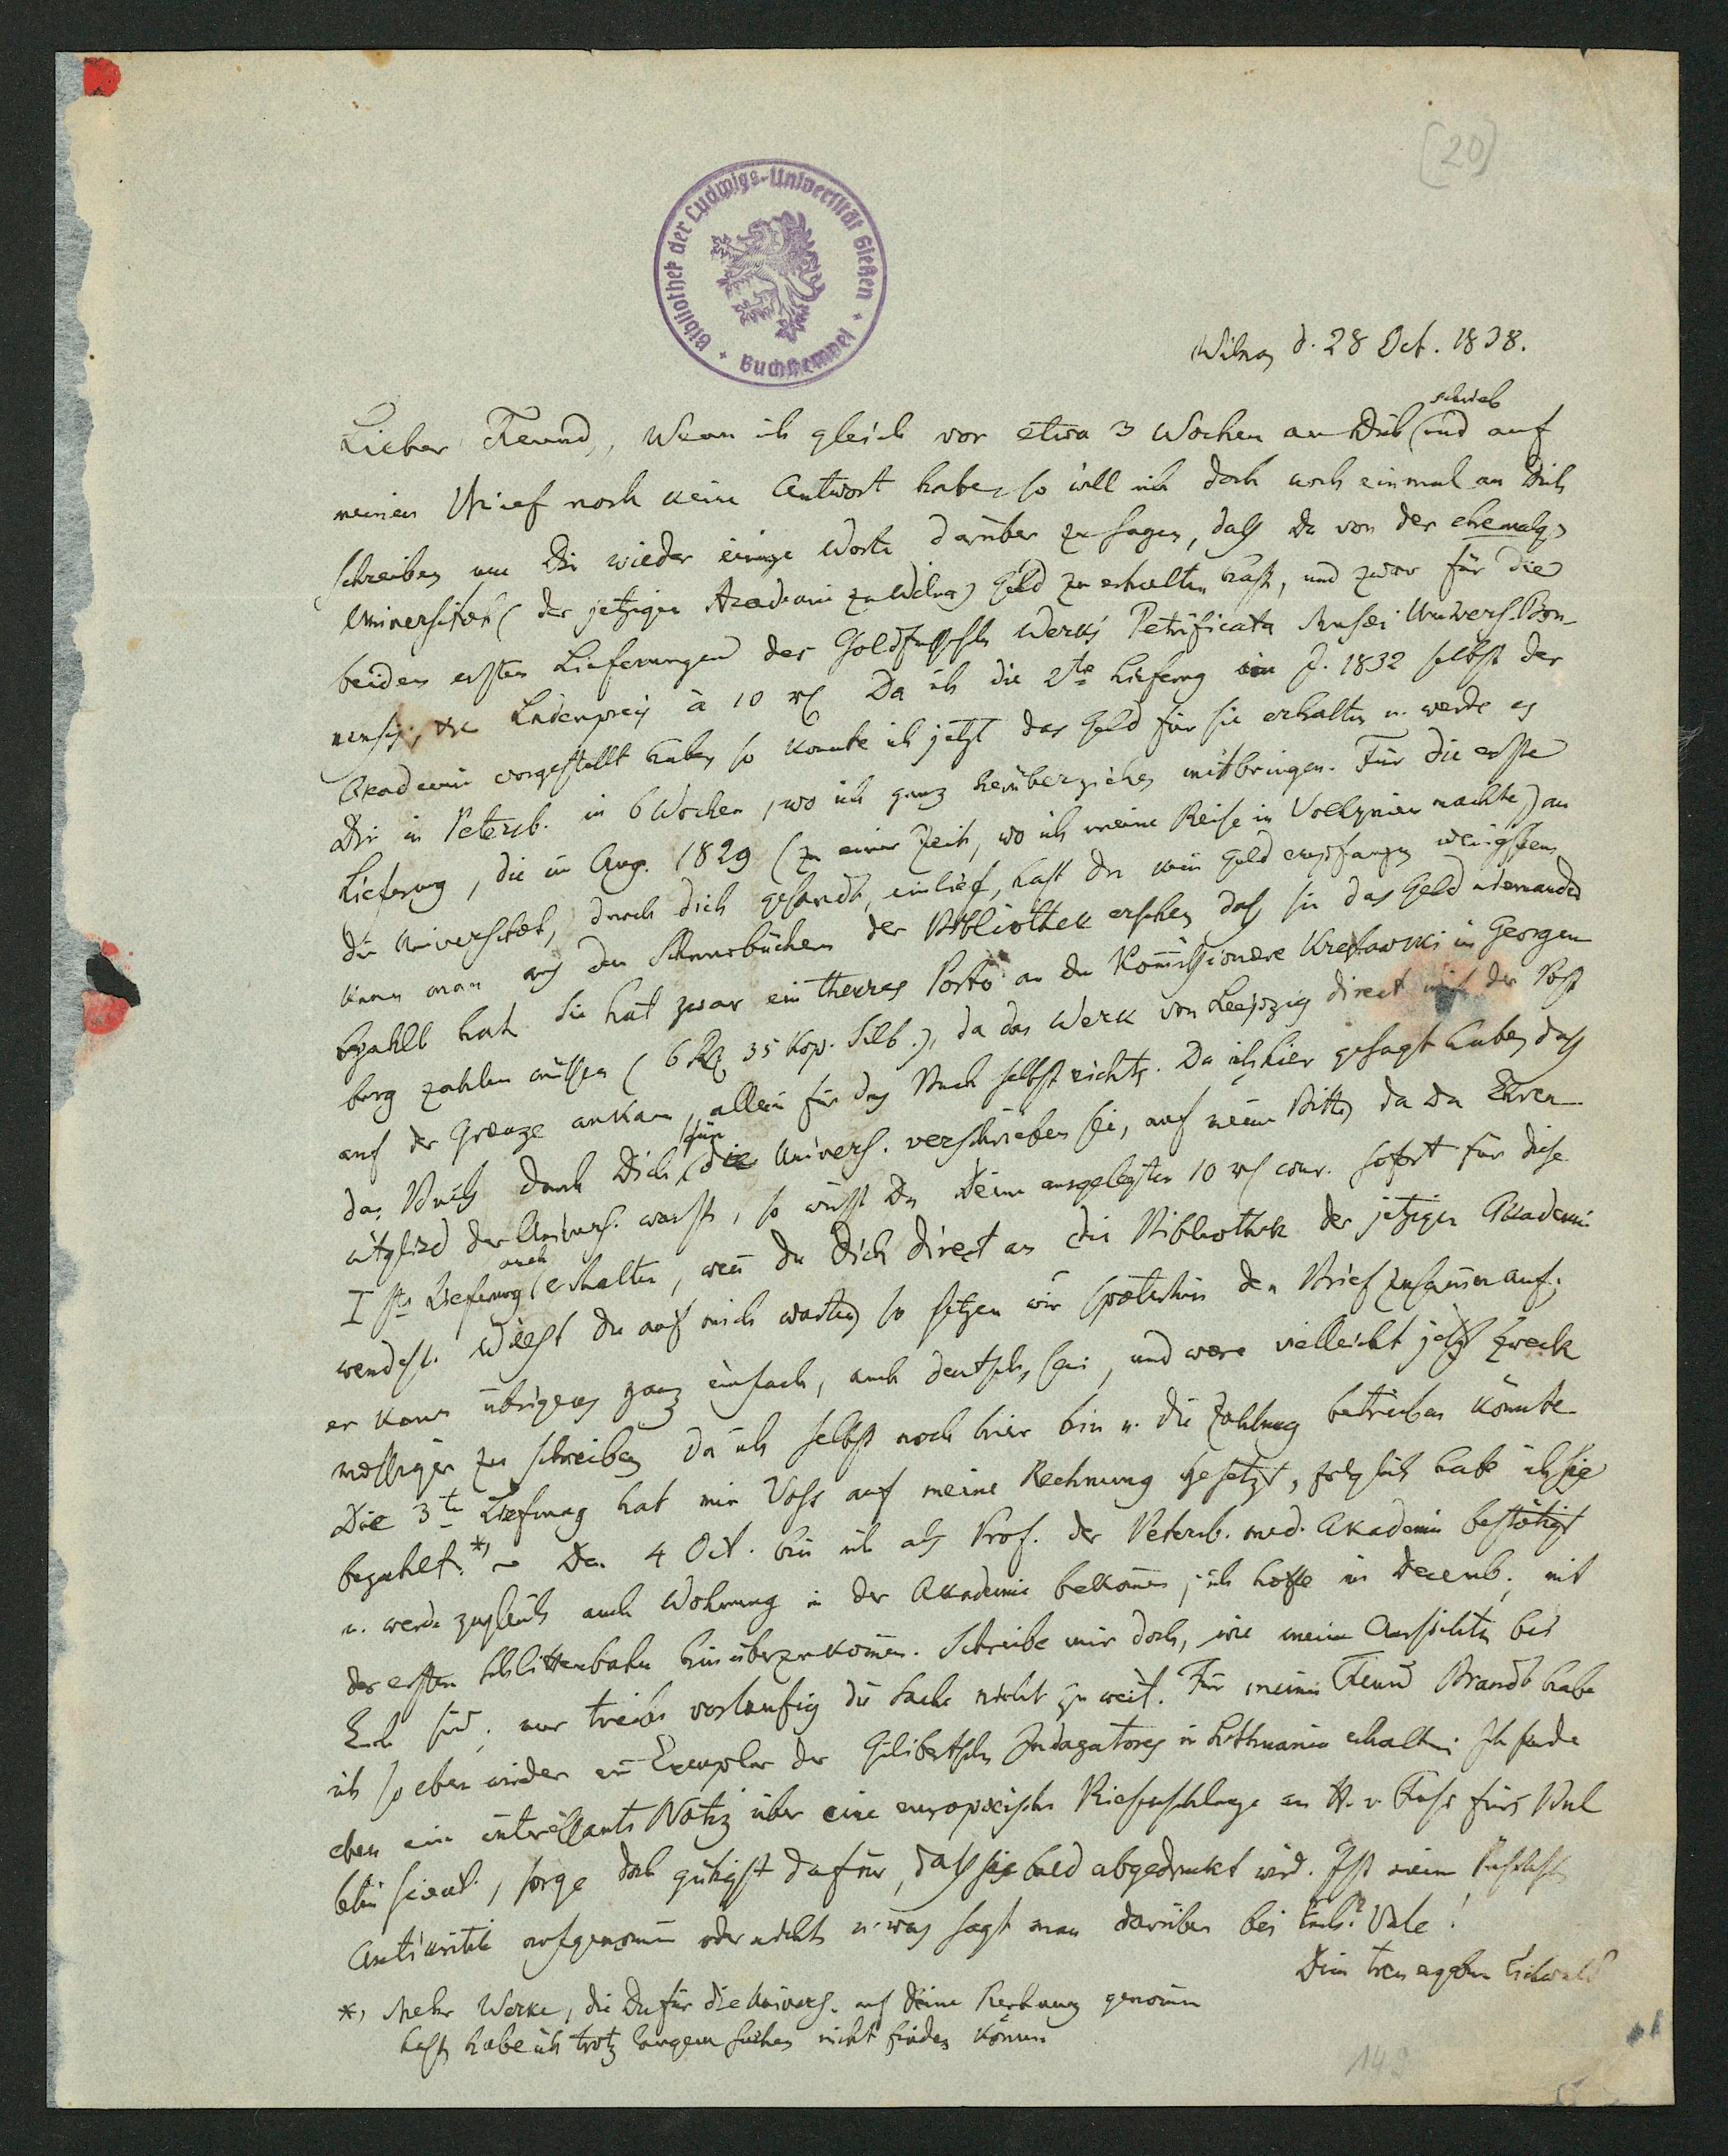 (20)
Bibliothek der Ludwigs-Universität Gießen
Buchstempel
Wilna d. 28 Oct. 1838.
schrieb
Lieber Freund, Wenn ich gleich vor etwa 3 Wochen an Dich und auf
meinen Brief noch keine Antwort habe, so will ich doch noch einmal an Dich
schreiben um Dir wieder einige Worte darüber zu sagen, daß Du von der ehemalgn
Universitæt (der jetzigen Academie zu Wilna) Geld zu erhalten hast, und zwar für die
beiden ersten Lieferungen des Goldfußschen Werks Petrificata Musei Univers. Bon-
nensis, Ladenpreis à 10 rh Da ich die 2te Liefrng im J. 1832 selbst der
Akademie vorgestellt habe, so konnte ich jetzt das Geld für sie erhalten u. werde es
Dir in Petersb. in 6 Wochen, wo ich ganz herüberziehe, mitbringen. Für die erste
Lieferung, die im Aug. 1829 (zu einer Zeit, wo ich meine Reise in Volhynien machte) an
die Universitæt, durch dich gesandt, einlief, hast du kein Geld empfangen wenigstens
kann man aus den Schnurbüchern der Bibliothek ersehen daß sie das Geld niemanden
bezahlt hat. Sie hat zwar ein theures Porto an den Kommissionære in Georgen
burg zahlen müssen (6 Rbl 35 Kop. Silb.), da das Werk von Leipzig direct mit der Post
auf der Grænze ankam, allein für das Buch selbst nichts. Da ich hier gesagt habe, daß
für
das Buch durch Dich die Univers. verschrieben sei, auf meine Bitte, da Du Ehren
mitglied der Univers. warst, so wirst Du Deine ausgelegten 10 rh cour. sofort für diese
auch
Iste Lieferung erhalten, wenn Du Dich direct an die Bibliothek der jetzigen Akademie
wendest. Willst du auf mich warten, so setzen wir spæterhin den Brief zusammen auf;
er kann übrigens ganz einfach, auch deutsch, sein, und wære vielleicht jetzt zweck
mæssiger zu schreiben, da ich selbst noch hier bin u. die Zahlung betreiben könnte.
Die 3te Liefrung hat mir Voss auf meine Rechnung gesetzt, folglich habe ich sie
bezahlt. *) – Den 4 Oct. bin ich als Prof. der Petersb. med. Akademie bestätigt
u. werde zugleich auch Wohnung in der Akademie bekommen; ich hoffe im Decemb. mit
der ersten Schlittenbahn hinüberzukommen. Schreibe mir doch, wie meine Aussichten bei
Euch sind; nur treibe vorlaufig die Sache nicht zu weit. Für meinen Freund Brandt habe
ich so eben wieder ein Exemplar der Gilibertschen Indagatores in Lithuania erhalten; Ich sende
eben eine interessante Notiz über eine europæische Riesenschlange an H. v. Fuss fürs Bul
letin scient., sorge doch gütigst dafür, daß sie bald abgedruckt wird. Ist meine
Antikritik aufgenommen oder nicht u. was sagt man darüber bei Euch? Vale!
Dein treu ergebener Eichwald
*) Mehr Werke, die Du für die Univers. auf deine Rechnung genommen
hast, habe ich trotz langem Suchen nicht finden können